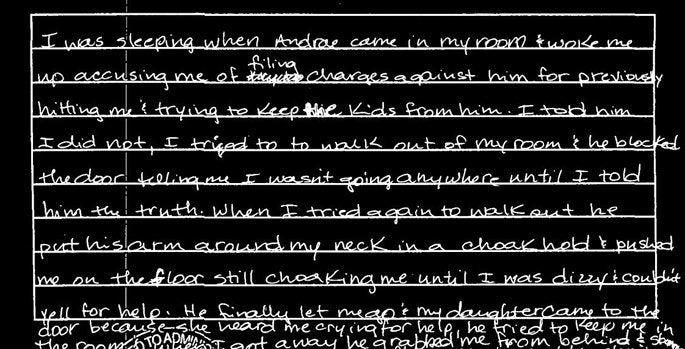 I was sleeping when Andrae came in my room & woke me
filing
up accusing me of charges against him for previously
hitting me & trying to keep the kids from him. I told him
I did not, I tried to to walk out of my room & he blocked
the door telling me I wasn't going anywhere until I told
him the truth. When I tried again to walk out he
put his arm around my neck in a choak hold & pushed
me on the floor still choaking me until I was dizzy & couldn't
yell for help. He finally let me go & my daughter came to the
door because she heard me crying for help, he tried to keep me in
the room I got away he grabbed me from behind &